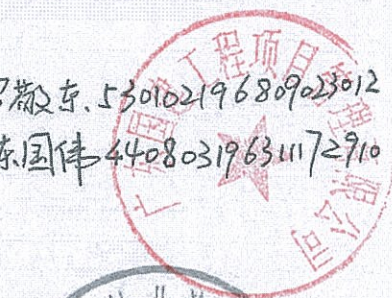 敬东.530102196809023012
国伟440803196311172910
工程项目管理有限公司